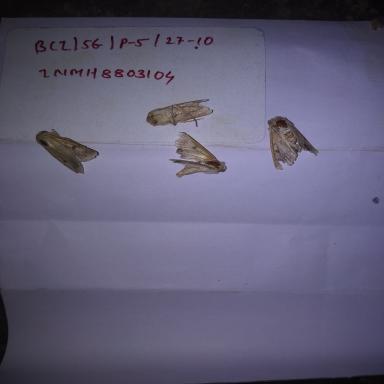 BCZ/56/P-5/27-10
2NMH8803104